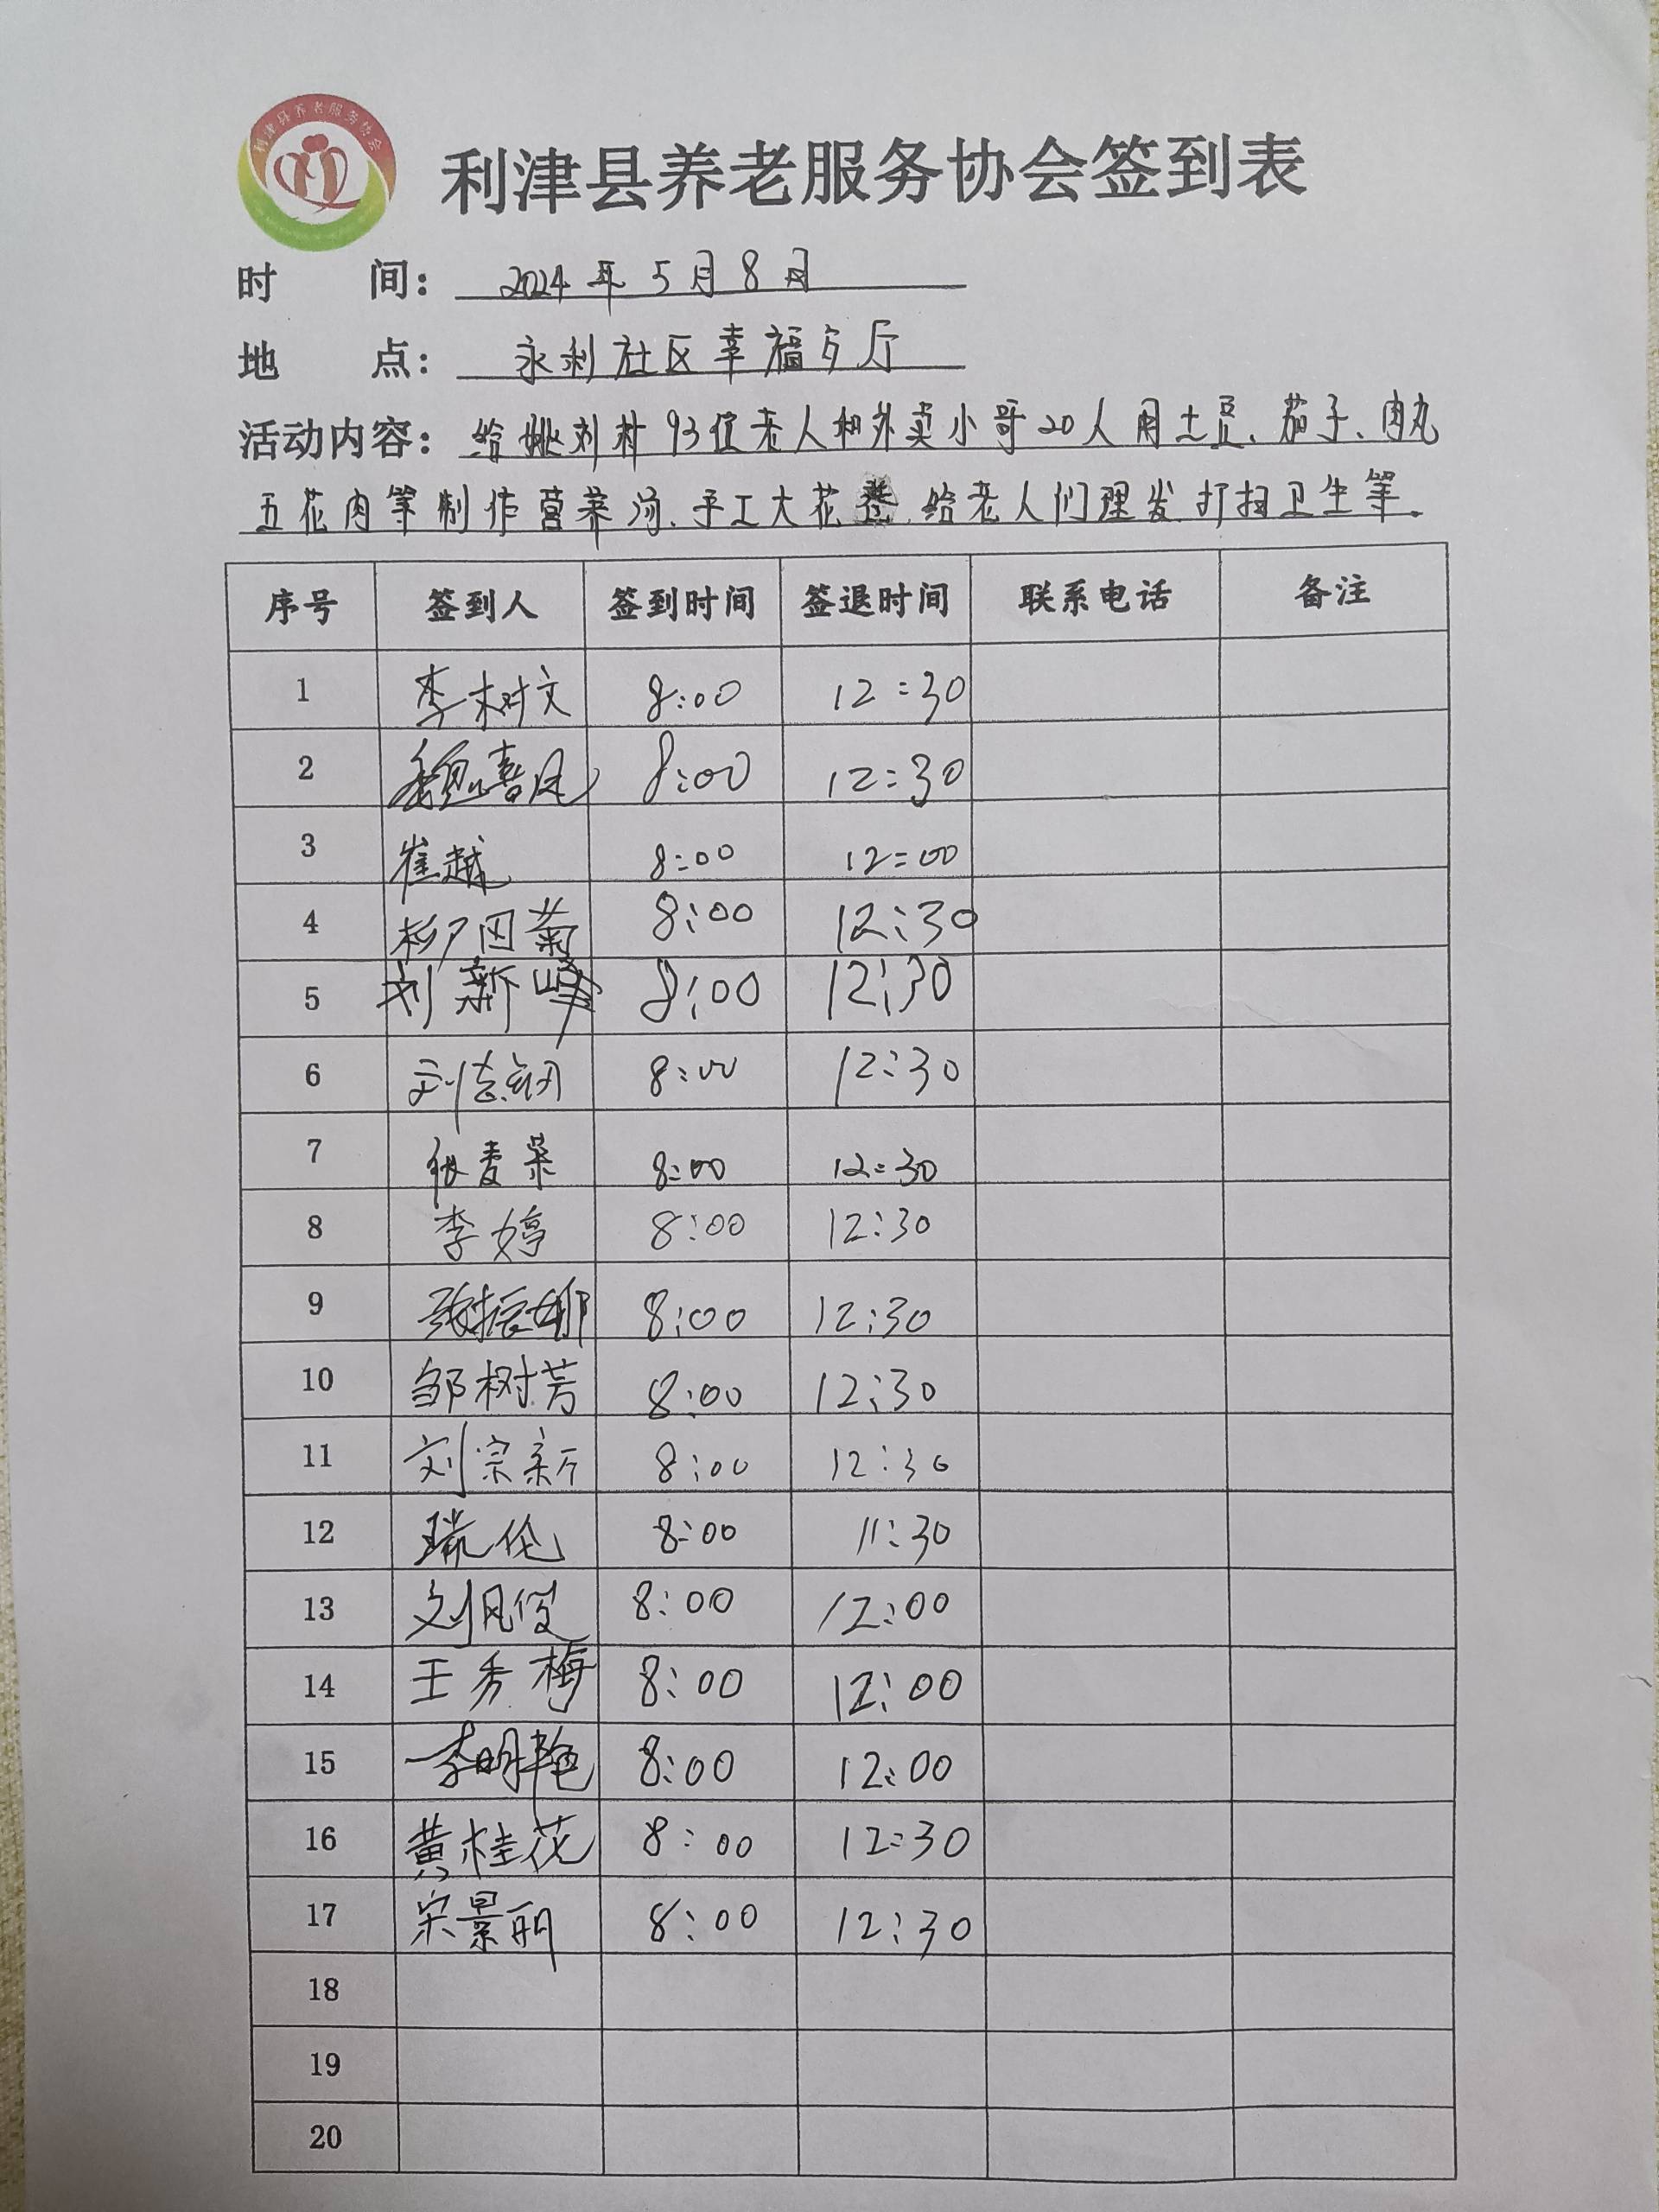 利津县养老服务协会
利津县养老服务协会签到表
时 间： 2024年5月8日
地 点： 永利社区幸福歺厅
活动内容： 给姚刘村93位老人和外卖小哥20人用土豆、茄子、肉丸
五花肉等制作营养汤、手工大花卷、给老人们理发打扫卫生等。
序号 签到人 签到时间 签退时间 联系电话 备注
1 李树文 8:00 12:30
2 魏喜凤 8:00 12:30
3 崔越 8:00 12:00
4 8:00 12:30
5 刘新峰 8:00 12:30
6 8:00 12:30
7 张麦荣 8:00 12:30
8 李婷 8:00 12:30
9 张振娜 8:00 12:30
10 邹树芳 8:00 12:30
11 刘宗新 8:00 12:30
12 瑞伦 8:00 11:30
13 刘风俊 8:00 12:00
14 王秀梅 8:00 12:00
15 李明艳 8:00 12:00
16 黄桂花 8:00 12:30
17 宋景丽 8:00 12:30
18
19
20